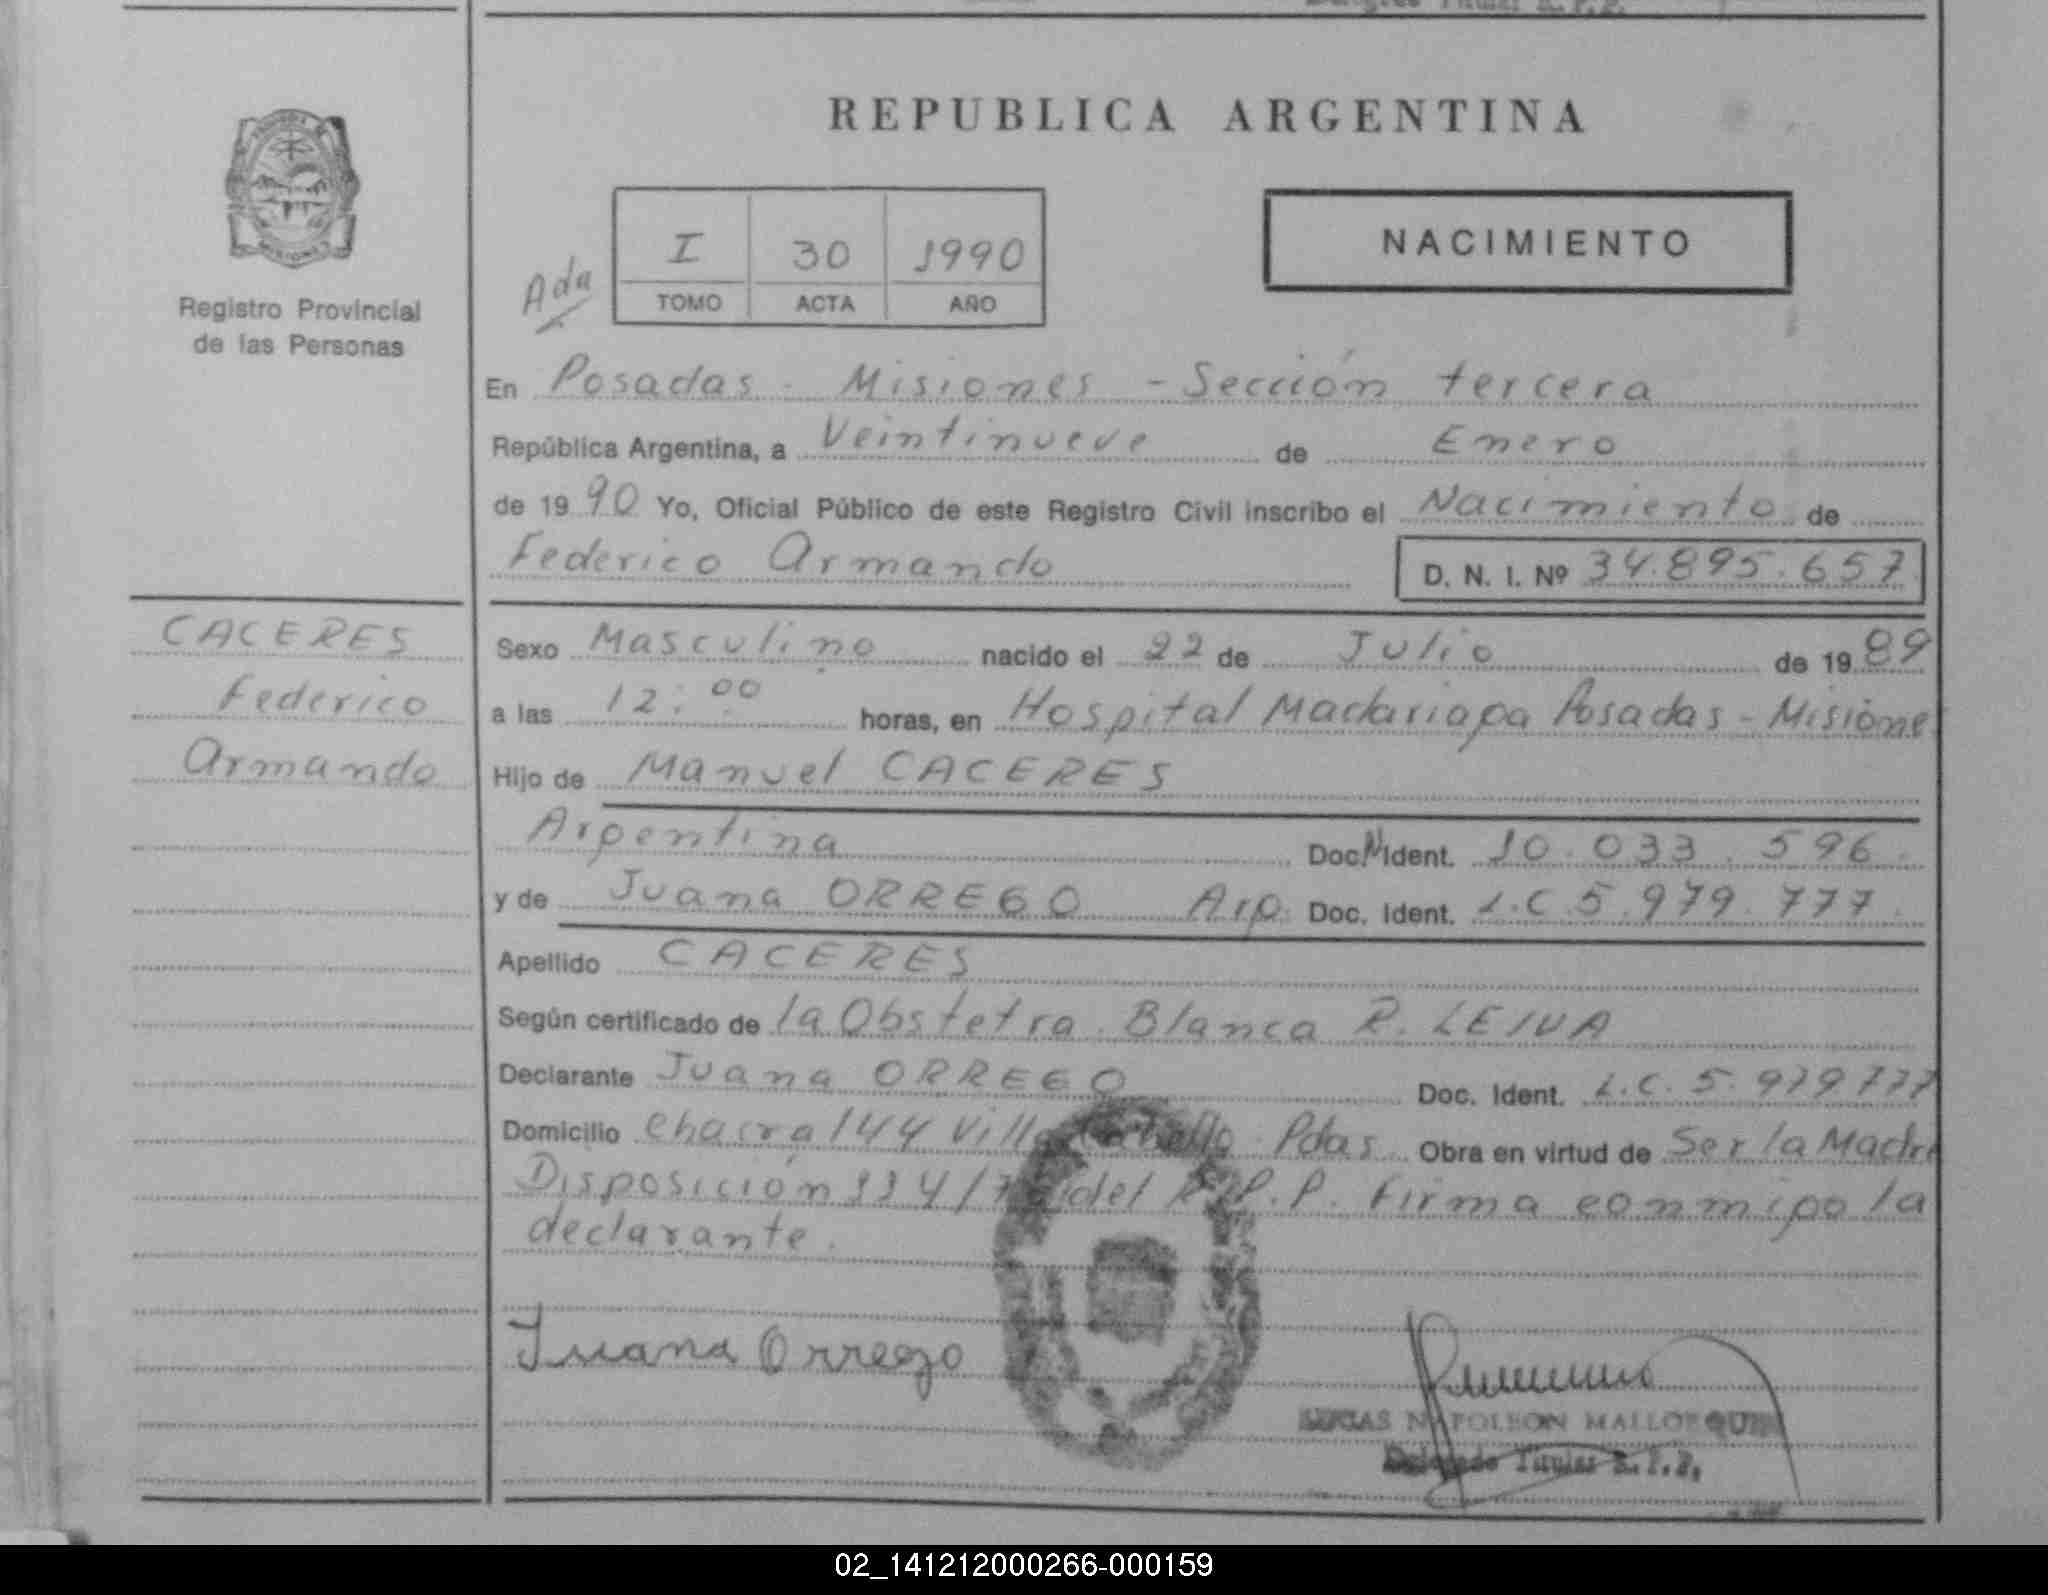 REPUBLICA ARGENTINA
Registro Provincial
de las Personas
Ada
I 30 1990
TOMO ACTA AÑO
NACIMIENTO
En Posadas - Misiones - Sección tercera
República Argentina, a Veintinueve de Enero
de 1990 Yo, Oficial Público de este Registro Civil inscribo el Nacimiento de
Federico Armando D. N. I. Nº 34.895.657
CACERES
Federico
Armando
Sexo Masculino nacido el 22 de Julio de 1989
a las 12:00 horas, en Hospital Madariaga Posadas - Misione
Hijo de Manuel CACERES
Argentina Doc N Ident. 10.033.596.
y de Juana ORREGO Arg. Doc. Ident. L.C 5.979.777.
Apellido CACERES
Según certificado de la Obstetra Blanca R. LEIVA
Declarante Juana ORREGO Doc. Ident. L.C. 5.979777
Domicilio Chacra 144 Villa Pdas Obra en virtud de Ser la Madre
Disposición del P. Firma conmigo la
declarante.
Juana Orrego
LUCAS NAPOLEON MALLORQUIN
Delegado Titular R.P.P.
02_141212000266-000159